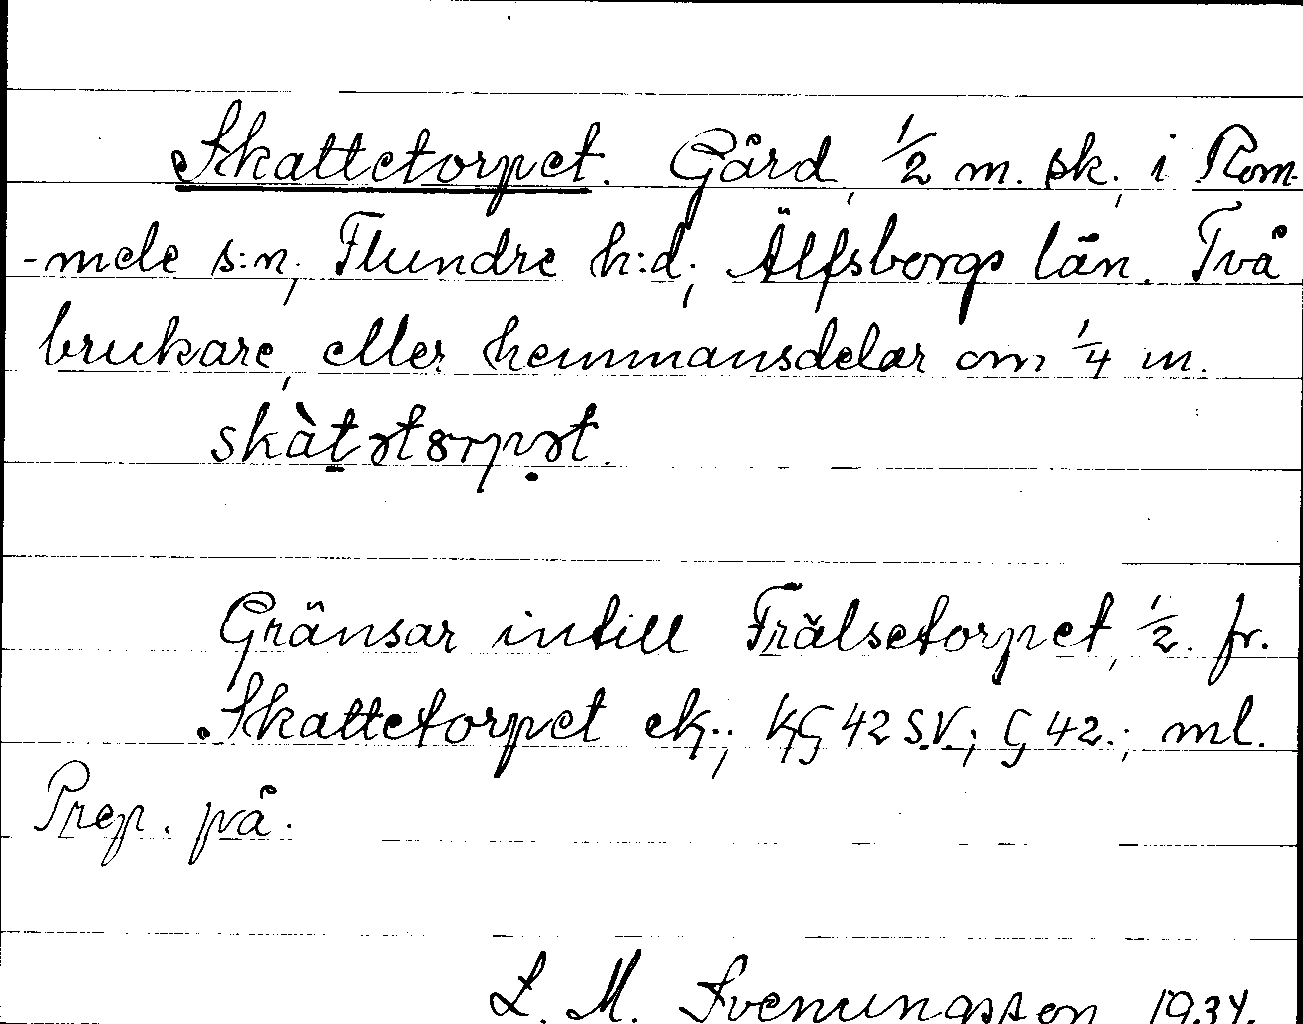 Skattetorpet. Gård, 1/2 m. sk., i Rom-
-mele s:n, Flundre h:d, Älfsborgs län. Två
brukare, eller hemmansdelar om 1/4 m.
skàt̠ətɞrpə̣t.
Gränsar intill Frälsetorpet, 1/2. fr.
Skattetorpet ek.; KG 42 S.V.; G 42.; ml.
Prep. på.
L. M. Svenungsson 1934.